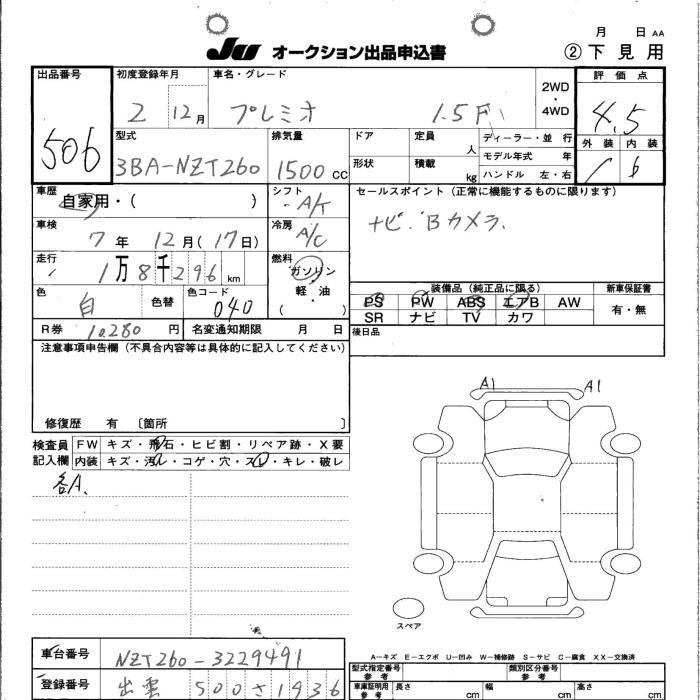 JU オークション出品申込書
月 日 AA
② 下見用
出品番号 初度登録年月 車名・グレード 2WD・4WD 評価点
506 2 12月 プレミオ 1.5F 4.5
型式 排気量 ドア 定員 人 ディーラー・並行 外装 内装
3BA-NZT260 1500cc 形状 積載 kg モデル年式 年
ハンドル 左・右
車歴 自家用・( ) シフト A/T セールスポイント(正常に機能するものに限ります)
車検 7年 12月(17日) 冷房 A/C ナビ.Bカメラ.
走行 1万8千296km 燃料 ガソリン・軽・油 ( )
装備品(純正品に限る) 新車保証書
色 色替 色コード 040
PS PW ABS エアB AW 有・無
SR ナビ TV カワ
R券 10,280円 名変通知期限 月 日 後日品
注意事項申告欄(不具合内容等は具体的に記入してください)
修復歴 有 〔箇所 〕
検査員 FW キズ・飛石・ヒビ割・リペア跡・X要
記入欄 内装 キズ・汚レ・コゲ・穴・スレ・キレ・破レ
各A.
A1 A1
スペア
A-キズ E-エクボ U-凹み W-補修跡 S-サビ C-腐食 XX-交換済
車台番号 NZT260-3229491
型式指定番号 参考 類別区分番号 参考
登録番号 出雲 500さ1936
車庫証明用 参考 長さ cm 幅 cm 高さ cm